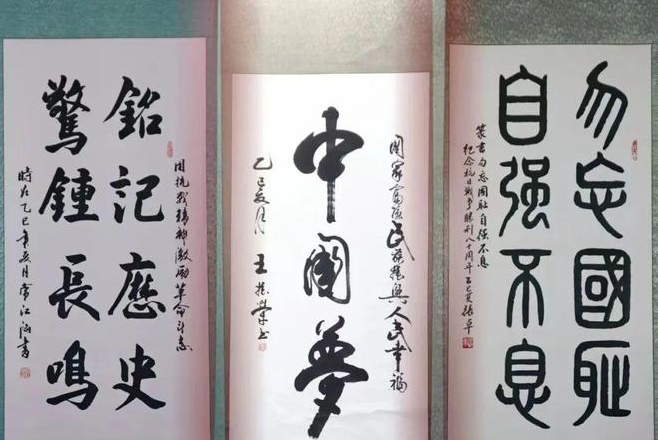 銘記歷史
驚鍾長鳴
用抗戰精神激勵革命斗志
時在乙巳年夏月常江書
國家富强民族振興人民幸福
中國夢
乙巳夏月 王
勿忘國耻
自强不息
篆書勿忘國耻自强不息
紀念抗日戰爭勝利八十周年乙巳夏張卓